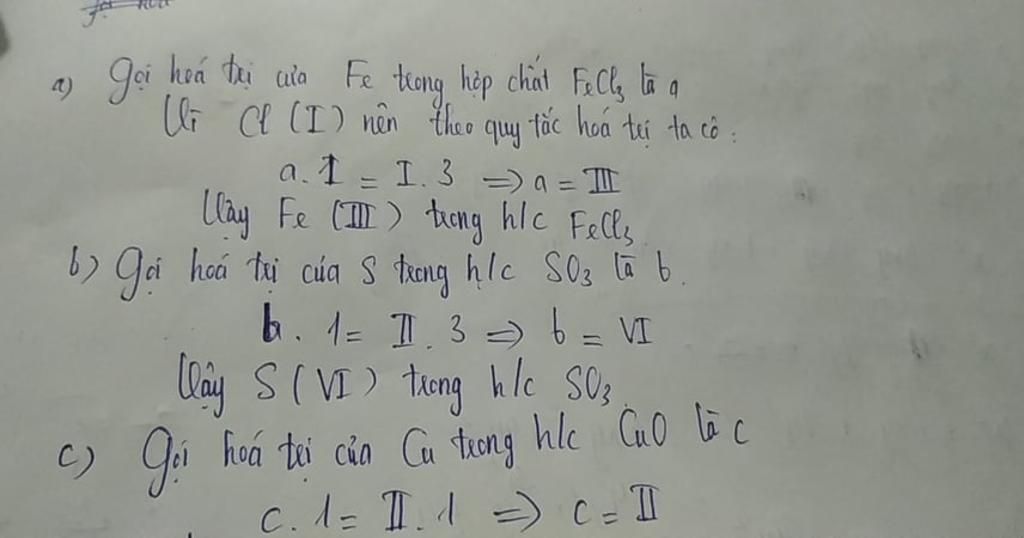 a) Gọi hoá trị của Fe trong hợp chất FeCl₃ là a
Vì Cl (I) nên theo quy tắc hoá trị ta có:
a. 1 = I. 3 => a = III
Vậy Fe (III) trong h/c FeCl₃
b) Gọi hoá trị của S trong h/c SO₃ là b.
b. 1 = II. 3 => b = VI
Vậy S (VI) trong h/c SO₃
c) Gọi hoá trị của Cu trong h/c CuO là c
c. 1 = II. 1 => c = II